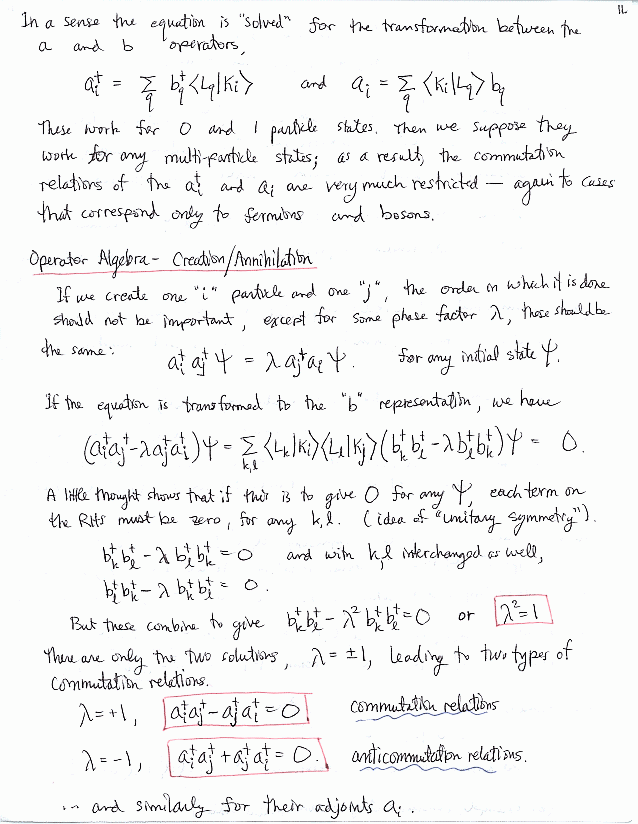 1L
In a sense the equation is "solved" for the transformation between the
a and b operators,
a_i† = Σ_q b_q† <L_q|K_i> and a_i = Σ_q <K_i|L_q> b_q
These work for 0 and 1 particle states. Then we suppose they
work for any multi-particle states; as a result, the commutation
relations of the a_i† and a_i are very much restricted — again to cases
that correspond only to fermions and bosons.
Operator Algebra - Creation/Annihilation
If we create one "i" particle and one "j", the order in which it is done
should not be important, except for some phase factor λ, these should be
the same: a_i† a_j† Ψ = λ a_j† a_i Ψ. for any initial state Ψ.
If the equation is transformed to the "b" representation, we have
(a_i† a_j† - λ a_j† a_i†) Ψ = Σ_{k,l} <L_k|K_i><L_l|K_j> (b_k† b_l† - λ b_l† b_k†) Ψ = 0.
A little thought shows that if this is to give 0 for any Ψ, each term on
the RHS must be zero, for any k,l. (idea of "unitary symmetry").
b_k† b_l† - λ b_l† b_k† = 0 and with k,l interchanged as well,
b_l† b_k† - λ b_k† b_l† = 0.
But these combine to give b_k† b_l† - λ² b_k† b_l† = 0 or λ² = 1
There are only the two solutions, λ = ±1, leading to two types of
commutation relations.
λ = +1, a_i† a_j† - a_j† a_i† = 0 commutation relations
λ = -1, a_i† a_j† + a_j† a_i† = 0. anticommutation relations.
... and similarly for their adjoints a_i.